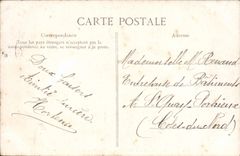 CARTE POSTALE
Correspondance
Tous les pays étrangers n'acceptent pas la
correspondance au verso, se renseigner à la poste.
Adresse
Doux baisers
amitié sincère
Mademoiselle M. Renard
Entrepreneur de Bâtiments
à St Quay-Portrieux
(Côtes-du-Nord)